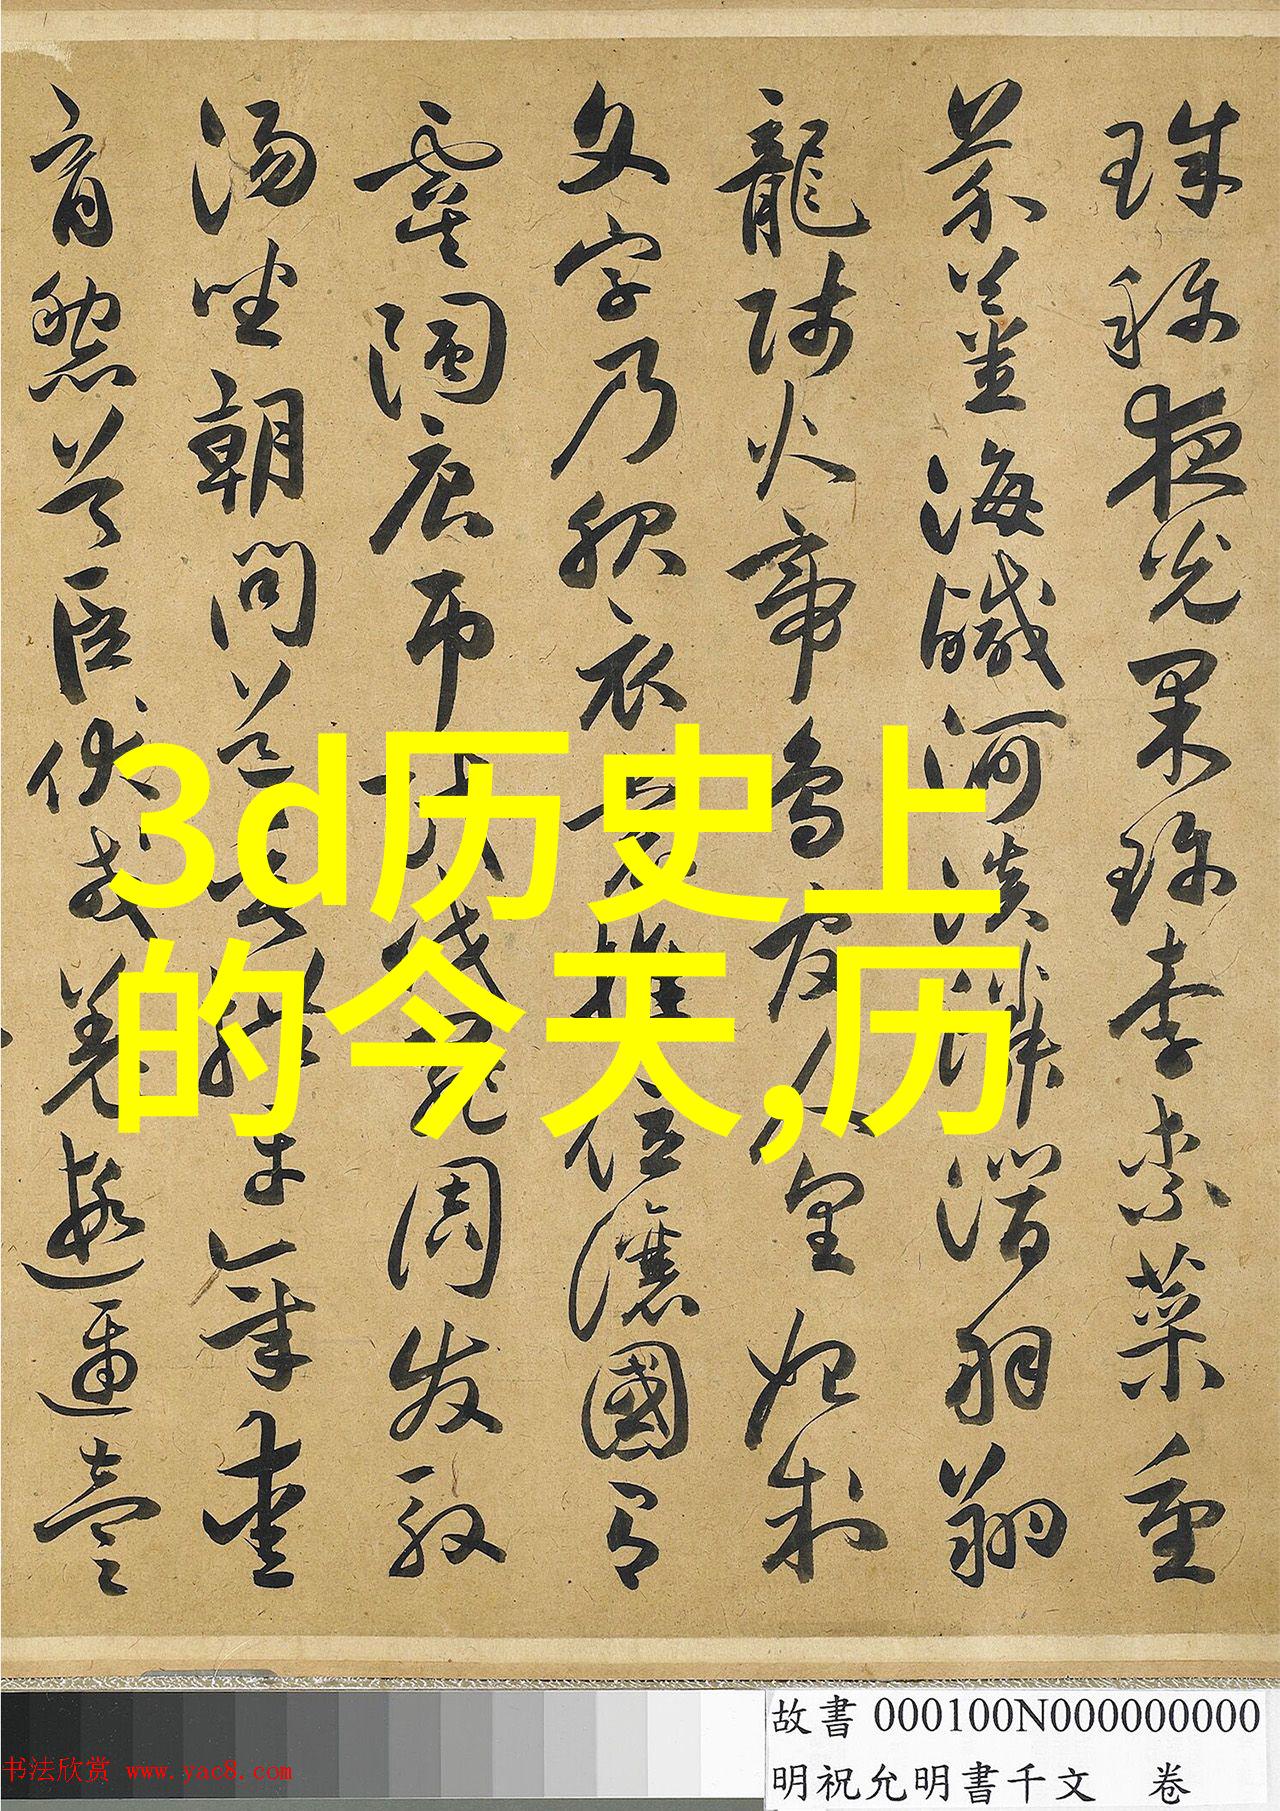 珠稱夜光果珍李柰菜重
芥薑海鹹河淡鱗潛羽翔
龍師火帝鳥官人皇始制
文字乃服衣裳推位讓國有
虞陶唐弔民伐罪周发殷
湯坐朝問道垂拱平章愛
育黎首臣伏戎羌遐邇壹
3d历史上
的今天,历
故書 000100N000000000
明祝允明書千文 卷
书法欣赏 www.yac8.com